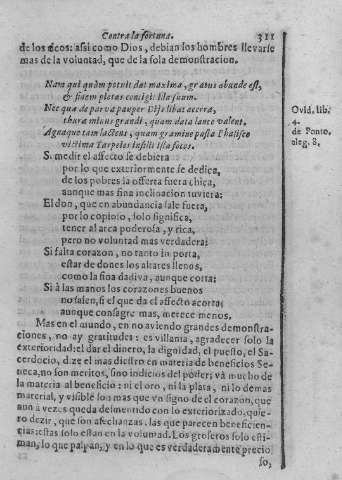 Contra la fortuna. 311
de los ecos: assi como Dios, debian los hombres llevarse
mas de la voluntad, que de la sola demonstracion.
Nam qui quàm potuit dat maxima, gratus abunde est,
& finem pietas contigit illa suum.
Nec quæ de parva pauper Dijs libat acerra,
thura minus grandi, quam data lance valent.
Agnaque tam lactens, quam gramine pasta Phalisco
victima Tarpeios inficit icta focos.
Ovid. lib.
4.
de Ponto,
eleg. 8,
Si medir el affecto se debiera
por lo que exteriormente se dedica,
de los pobres la offerta fuera chica,
aunque mas fina inclinacion tuviera:
El don, que en abundancia sale fuera,
por lo copioso, solo significa,
tener al arca poderosa, y rica,
pero no voluntad mas verdadera:
Si falta corazon, no tanto importa:
estar de dones los altares llenos,
como la fina dadiva, aunque corta:
Si à las manos los corazones buenos
no salen, si el que dà el affecto acorta;
aunque consagre mas, merece menos,
Mas en el mundo, en no aviendo grandes demonstra-
ciones, no ay gratitudes: es villania, agradecer solo la
exterioridad: el dar el dinero, la dignidad, el puesto, el Sa-
cerdocio, dize el mas diestro en materia de beneficios Se-
neca, no son meritos, sino indicios del poder; và mucho de
la materia al beneficio: ni el oro, ni la plata, ni lo demas
material, y visible son mas que vn signo de el corazon, que
aun à vezes queda desmentido con lo exteriorizado: quie-
ro dezir, que son assechanzas. las que parecen beneficen-
cias: estas solo estan en la voluntad. Los groseros solo esti-
man, lo que palpan, y en lo que es verdaderamente precio
so,